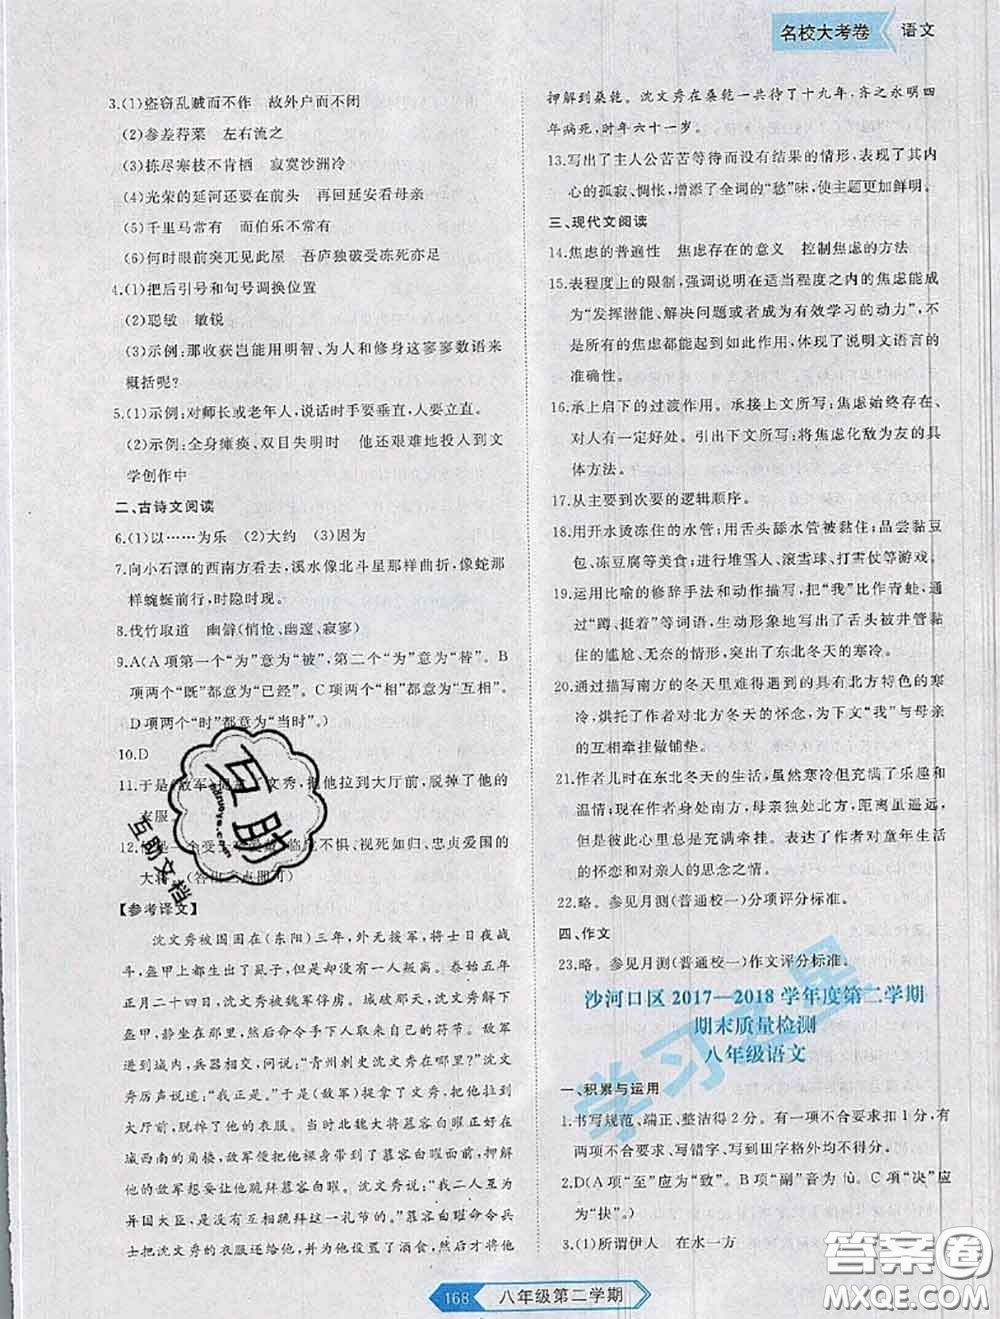 名校大考卷 语文
3.(1)盗窃乱贼而不作 故外户而不闭
(2)参差荇菜 左右流之
(3)拣尽寒枝不肯栖 寂寞沙洲冷
(4)光荣的延河还要在前头 再回延安看母亲
(5)千里马常有 而伯乐不常有
(6)何时眼前突兀见此屋 吾庐独破受冻死亦足
4.(1)把后引号和句号调换位置
(2)聪敏 敏锐
(3)示例:那收获岂能用明智、为人和修身这寥寥数语来
概括呢?
5.(1)示例:对师长或老年人,说话时手要垂直,人要立直。
(2)示例:全身瘫痪、双目失明时 他还艰难地投入到文
学创作中
二、古诗文阅读
6.(1)以……为乐 (2)大约 (3)因为
7.向小石潭的西南方看去,溪水像北斗星那样曲折,像蛇那
样蜿蜒前行,时隐时现。
8.伐竹取道 幽僻(悄怆、幽邃、寂寥)
9.A(A项第一个“为”意为“被”,第二个“为”意为“替”。B
项两个“既”都意为“已经”。C项两个“相”都意为“互相”。
D项两个“时”都意为“当时”。)
10.D
11.于是(敌军)
文秀,把他拉到大厅前,脱掉了他的
衣服
12.
临危不惧、视死如归、忠贞爱国的
大将。(答出三点即可)
【参考译文】
沈文秀被围困在(东阳)三年,外无援军,将士日夜战
斗,盔甲中都生出了虱子,但没有背叛的想法。泰始五年
正月二十四日晚上,沈文秀被敌军俘虏。城败的时候,沈
文秀解下盔甲,穿着宽松的衣服,命令身边的人拿来所持
节,静坐在那里。一会儿,敌兵各处涌入,有的士兵拿着
兵器,冲向沈文秀,问说:“青州刺史沈文秀在哪里?”沈文
秀厉声说道:“就是我。”于是(敌军)抓捕了文秀,把他拉到
大厅前,脱掉了他的衣服。当时北魏大将慕容白曜在
城西南的角楼,敌军裸绑着他押解到了慕容白曜面前,他
的敌军想要让他跪拜慕容白曜。沈文秀说:“我二人互为
异国大臣,是没有互相跪拜这一礼节的。”慕容白曜命令兵
士把沈文秀的衣服还给他,并给他设置了酒食,然后将他
押解到桑乾。沈文秀在桑乾一共待了十九年,齐之永明四
年病死,时年六十一岁。
13.写出了主人公苦苦等待而没有结果的情形,表现了其内
心的孤寂、惆怅,增添了全词的“愁”味,使主题更加鲜明。
三、现代文阅读
14.焦虑的普遍性 焦虑存在的意义 控制焦虑的方法
15.表程度上的限制,强调说明在适当程度之内的焦虑能成
为“发挥潜能、解决问题或者成为有效学习的动力”,不
是所有的焦虑都能起到如此作用,体现了说明文语言的
准确性。
16.承上启下的过渡作用。承接上文所写:焦虑始终存在、
对人有一定好处。引出下文所写:将焦虑化敌为友的具
体方法。
17.从主要到次要的逻辑顺序。
18.用开水烫冻住的水管;用舌头舔水管被黏住;品尝黏豆
包、冻豆腐等美食;进行堆雪人、滚雪球、打雪仗等游戏
19.运用比喻的修辞手法和动作描写,把“我”比作青蛙,通
过“蹲、挺着”等词语,生动形象地写出了舌头被井管黏
住的尴尬、无奈的情形,突出了东北冬天的寒冷。
20.通过描写南方的冬天里难得遇到的具有北方特色的寒
冷,烘托了作者对北方冬天的怀念,为下文“我”与母亲
的互相牵挂做铺垫。
21.作者儿时在东北冬天的生活,虽然寒冷但充满了乐趣和
温情;如今或将来,作者身处南方,母亲独处北方,距离虽遥远,
但是彼此心里总是充满牵挂。表达了作者对童年生活
的怀恋和对亲人的思念之情。
22.略。参见月测(普通校一)分项评分标准。
四、作文
23.略。参见月测(普通校一)作文评分标准.
沙河口区2017—2018学年度第二学期
期末质量检测
八年级语文
一、积累与运用
1.书写规范、端正、整洁得2分。有一项不合要求扣1分,有
两项不合要求不得分,写到田字格外均不得分。
2.D(A项“至”应为“致”。B项“副”音为fù。C项“决”应
为“抉”。)
3.(1)所谓伊人 在水一方
168 八年级第二学期
互助
互助文档
学习
答案圈
MXQE.COM